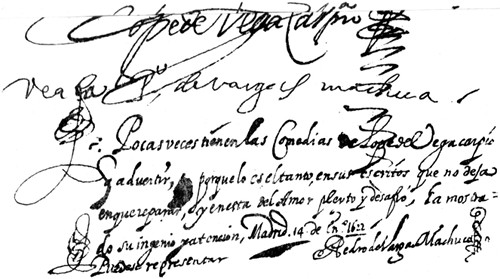 Lope de Vega Carpio
Vea la Pº de Vargas machuca.
Pocas veces tienen las Comedias de Lope de Vega carpio
q̃ aduertir, porque lo es el tanto, en sus escritos que no deja
en que reparar, y en esta del Amor pleyto y desafio, ha mostra=
do su ingenio y atencion, Madrid. 14 de En.º 1622
Puedese representar Pedro de Vargas Machuca